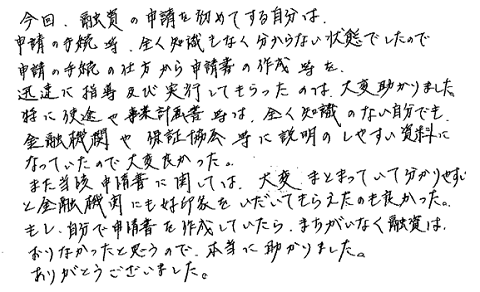 今回、融資の申請を初めてする自分は、
申請の手続 等、全く知識もなく分からない状態でしたので
申請の手続の仕方から申請書の作成 等を、
迅速に指導及び実行してもらったのは、大変助かりました。
特に使途や事業計画書等は、全く知識のない自分でも、
金融機関や保証協会 等に説明のしやすい資料に
なっていたので大変良かった。
また当該申請書に関しては、大変まとまっていて分かりやすい
と金融機関にも好印象をいだいてもらえたのも良かった。
もし、自分で申請書を作成していたら、まちがいなく融資は、
おりなかったと思うので、本当に助かりました。
ありがとうございました。